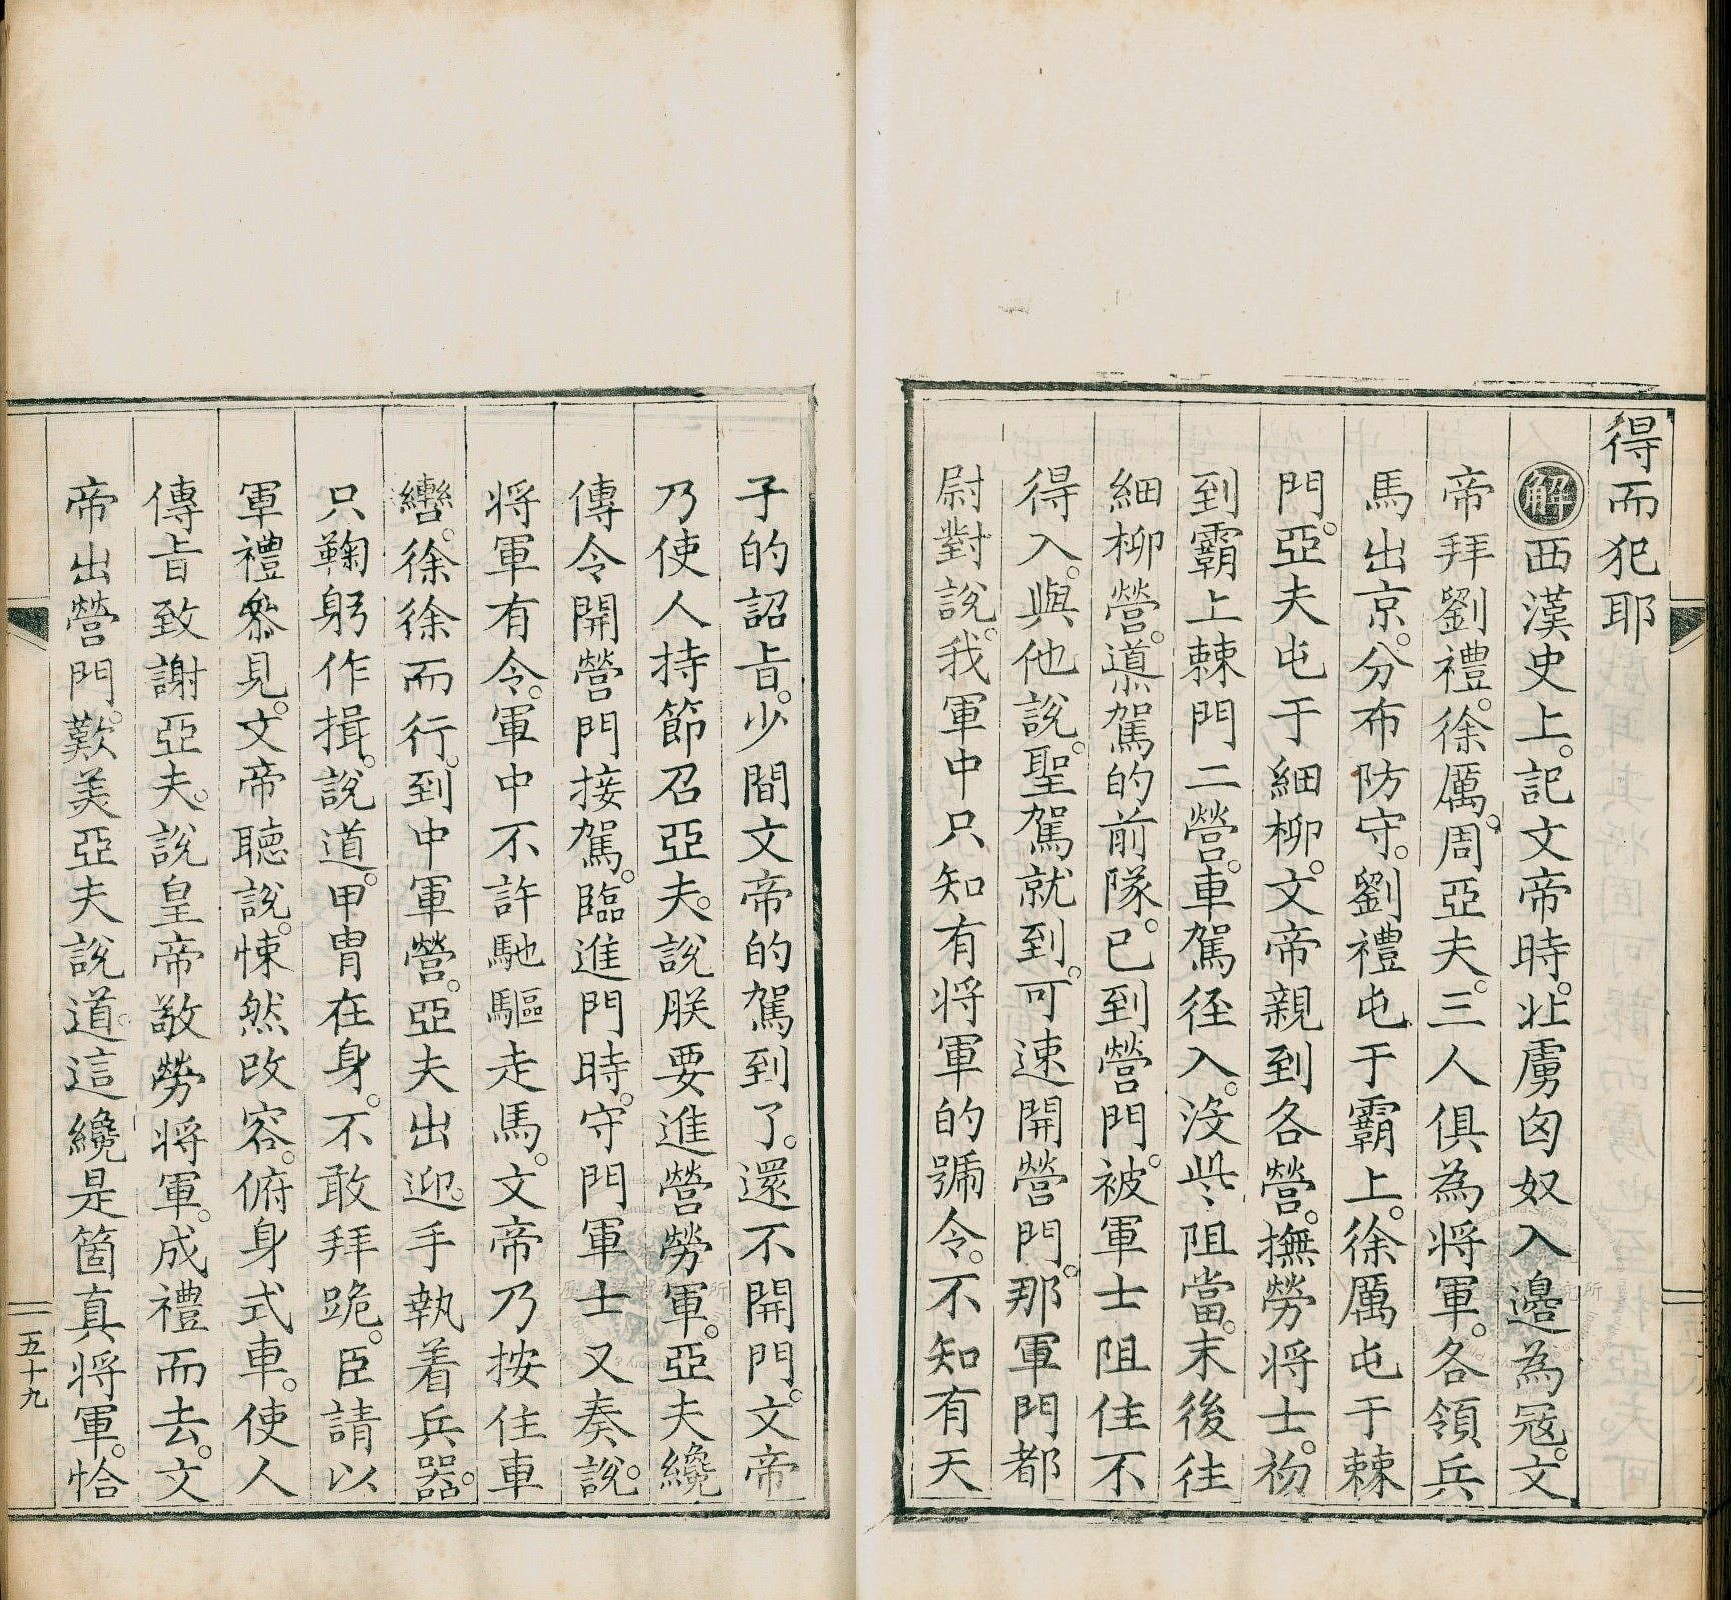 得而犯耶
解西漢史上。記文帝時。北虜匈奴入邊為寇。文
帝拜劉禮。徐厲。周亞夫。三人俱為将軍。各領兵
馬出京。分布防守。劉禮屯于霸上。徐厲屯于棘
門。亞夫屯于細柳。文帝親到各營。撫勞将士。初
到霸上棘門二營。車駕徑入。沒些阻當。末後往
細柳營。導駕的前隊。已到營門。被軍士阻住不
得入。與他說。聖駕就到。可速開營門。那軍門都
尉對說。我軍中只知有将軍的號令。不知有天
子的詔旨。少間文帝的駕到了。還不開門。文帝
乃使人持節召亞夫。說朕要進營勞軍。亞夫纔
傳令開營門接駕。臨進門時。守門軍士又奏說。
将軍有令。軍中不許馳驅走馬。文帝乃按住車
轡。徐徐而行。到中軍營。亞夫出迎。手執着兵器。
只鞠躬作揖。說道。甲冑在身。不敢拜跪。臣請以
軍禮叅見。文帝聽說。悚然改容。俯身式車。使人
傳旨致謝亞夫。說皇帝敬勞将軍。成禮而去。文
帝出營門。歎美亞夫說道。這纔是箇真将軍。恰
五十九